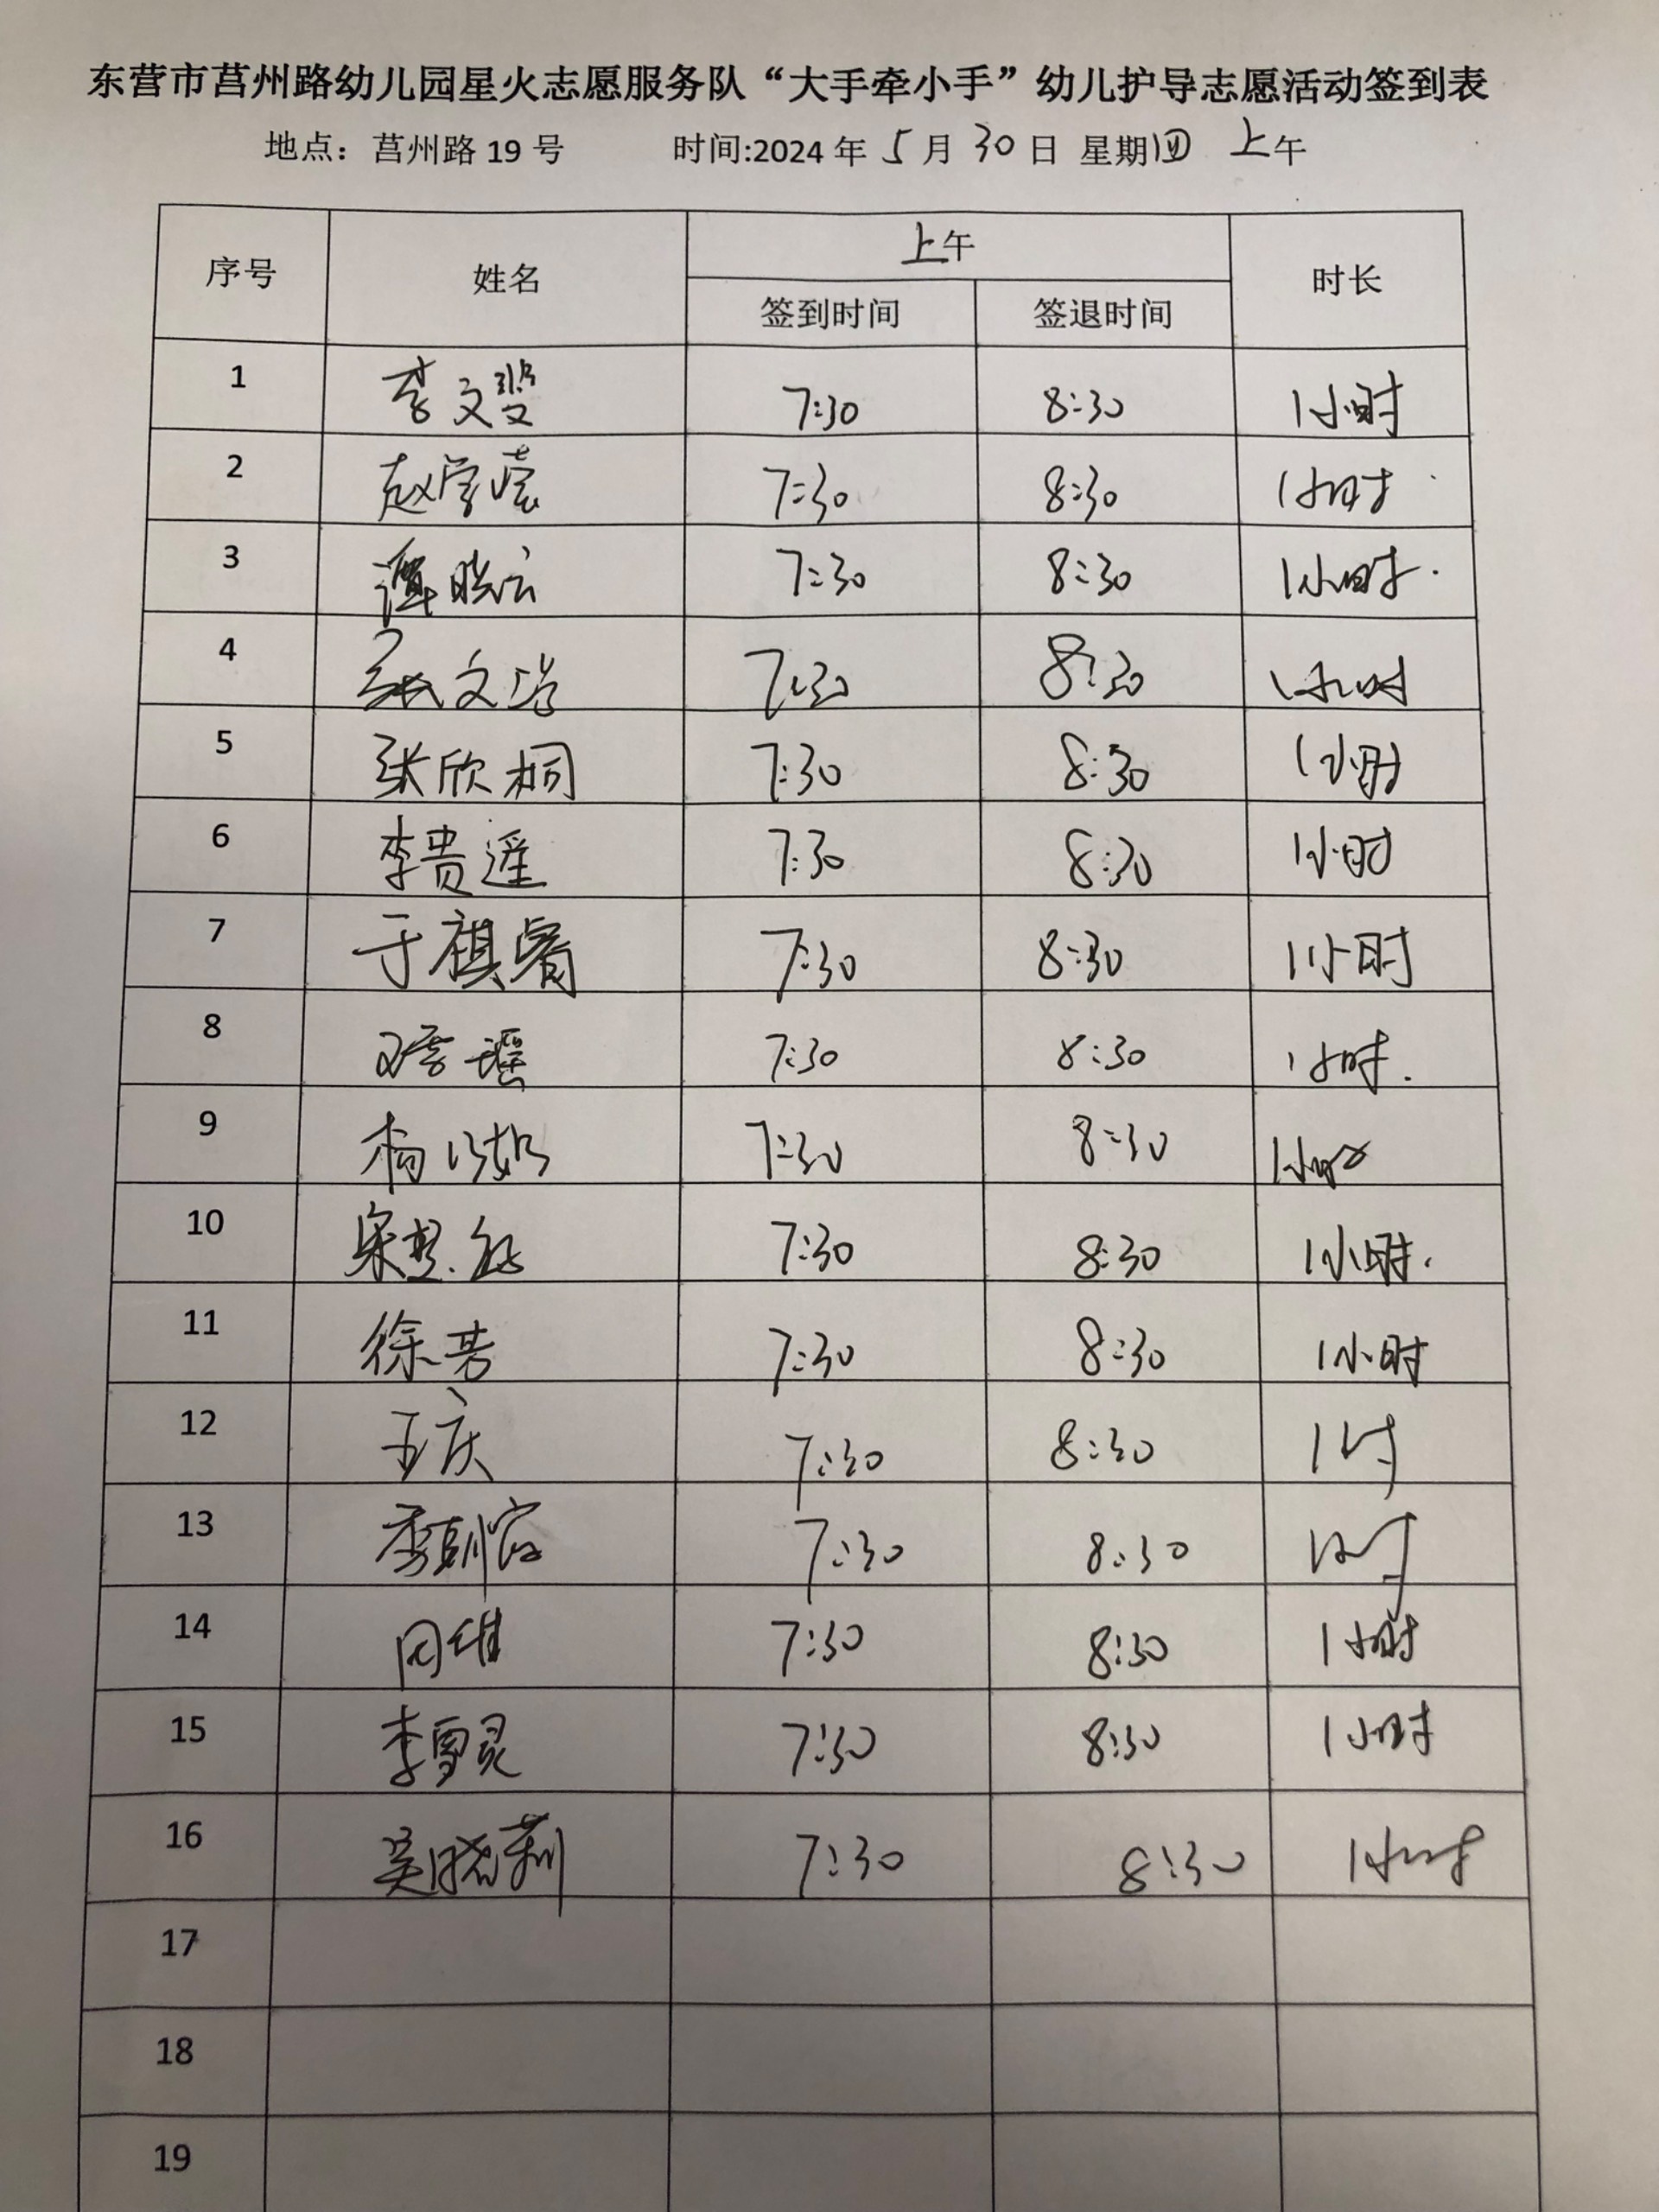 东营市莒州路幼儿园星火志愿服务队“大手牵小手”幼儿护导志愿活动签到表
地点：莒州路 19 号 时间:2024 年 5 月 30 日 星期四 上午
序号 姓名 上午 时长
签到时间 签退时间
1 李文 7:30 8:30 1小时
2 赵学莹 7:30 8:30 1小时
3 谭晓云 7:30 8:30 1小时.
4 张文 7:30 8:30 1小时
5 张欣桐 7:30 8:30 1小时
6 李贵遥 7:30 8:30 1小时
7 于祺睿 7:30 8:30 1小时
8 邓李瑶 7:30 8:30 1小时.
9 杨以如 7:30 8:30 1小时
10 宋 7:30 8:30 1小时.
11 徐芳 7:30 8:30 1小时
12 王庆 7:30 8:30 1时
13 李 7:30 8:30 1小时
14 周维 7:30 8:30 1小时
15 李雪灵 7:30 8:30 1小时
16 吴晓莉 7:30 8:30 1小时
17
18
19